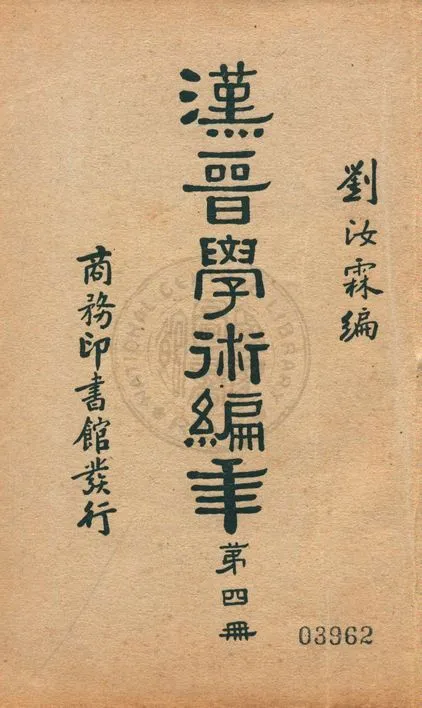 劉汝霖編
漢晉學術編年
第四冊
商務印書館發行
03962